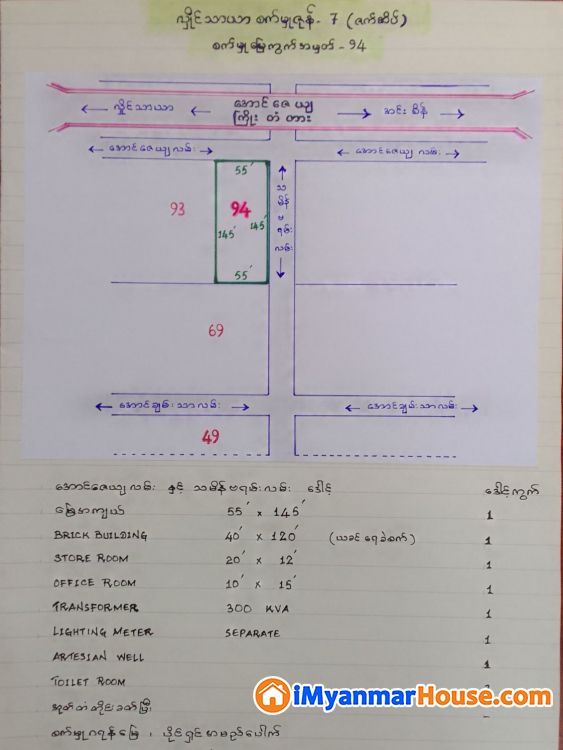 လှိုင်သာယာ စက်မှုဇုန် - 7 (ဇက်ဆိပ်)
စက်မှုမြေကွက်အမှတ် - 94
← လှိုင်သာယာ ← အောင်ဇေယျ → အင်းစိန် →
ကြိုးတံတား
← အောင်ဇေယျလမ်း →
← အောင်ဇေယျလမ်း →
55′
93
94
145′
145′
55′
← သမိန်ဗရမ်းလမ်း →
69
← အောင်ချမ်းသာလမ်း →
← အောင်ချမ်းသာလမ်း →
49
အောင်ဇေယျလမ်း နှင့် သမိန်ဗရမ်းလမ်း ဒေါင့် ဒေါင့်ကွက်
မြေအကျယ် 55′ x 145′ 1
BRICK BUILDING 40′ x 120′ (ယခင် ရေခဲစက်) 1
STORE ROOM 20′ x 12′ 1
OFFICE ROOM 10′ x 15′ 1
TRANSFORMER 300 KVA 1
LIGHTING METER SEPARATE 1
ARTESIAN WELL 1
TOILET ROOM
အုတ်တံတိုင်းခတ်ပြီး
စက်မှုဂရန်မြေ ၊ ပိုင်ရှင်အမည်ပေါက်
iMyanmarHouse.com